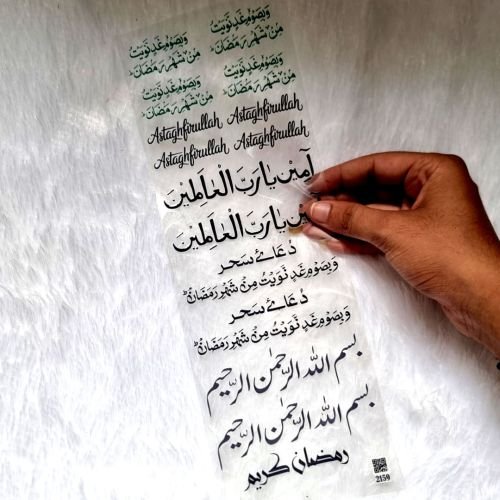 وَبِصَوْمِ غَدٍ نَّوَيْتُ وَبِصَوْمِ غَدٍ نَّوَيْتُ
مِنْ شَهْرِ رَمَضَانَ مِنْ شَهْرِ رَمَضَانَ
وَبِصَوْمِ غَدٍ نَّوَيْتُ وَبِصَوْمِ غَدٍ نَّوَيْتُ
مِنْ شَهْرِ رَمَضَانَ مِنْ شَهْرِ رَمَضَانَ
Astaghfirullah Astaghfirullah
Astaghfirullah Astaghfirullah
آمِيْن يَا رَبَّ الْعَالَمِيْنَ
يَا رَبَّ الْعَالَمِيْنَ
دُعَائے سَحر
وَبِصَوْمِ غَدٍ نَّوَيْتُ مِنْ شَهْرِ رَمَضَانَ
دُعَائے سَحر
وَبِصَوْمِ غَدٍ نَّوَيْتُ مِنْ شَهْرِ رَمَضَانَ
بِسْمِ اللّٰهِ الرَّحْمٰنِ الرَّحِيْمِ
بِسْمِ اللّٰهِ الرَّحْمٰنِ الرَّحِيْمِ
رمضان كريم
2159